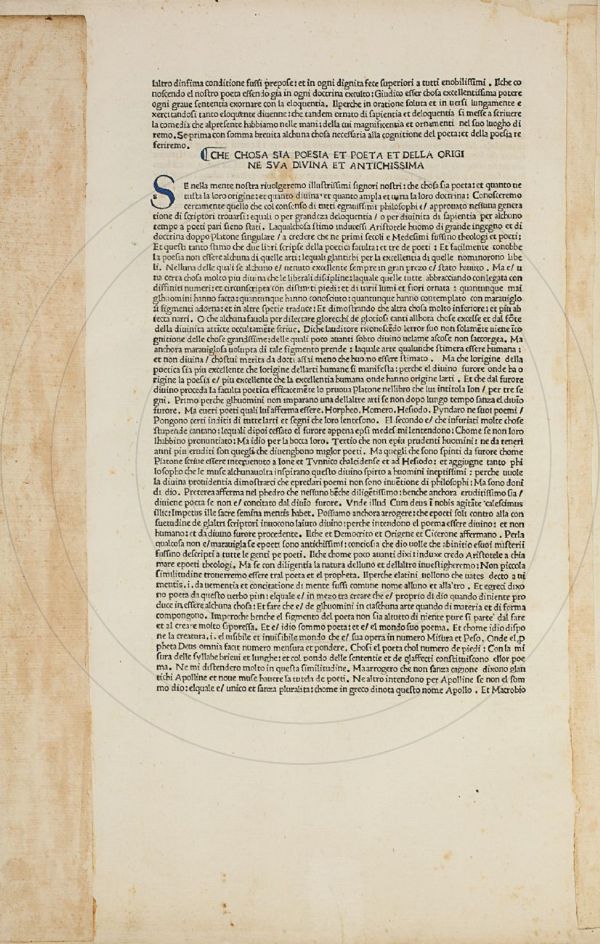 laltro dinfima conditione fussi prepose: et in ogni dignita fece superiori a tutti enobilissimi . Ilche co
noscendo el nostro poeta essendo gia in ogni doctrina exculto: Giudico esser chosa excellentissima potere
ogni graue sententia exornare con la eloquentia. Ilperche in oratione soluta et in uersi lungamente e
xercitandosi tanto eloquente diuenne: che tandem ornato di sapientia et deloquentia si messe a scriuere
la comedia che alpresente habbiamo nelle mani: della cui magnificentia et ornamenti nel suo luogho di
remo. Se prima con somma breuita alchuna chosa necessaria alla cognitione del poeta: et della poesia re
feriremo.
CHE CHOSA SIA POESIA ET POETA ET DELLA ORIGI
NE SVA DIVINA ET ANTICHISSIMA
SE nella mente nostra riuolgeremo illustrissimi signori nostri: che chosa sia poeta: et quanto ue
tusta la loro origine: et quanto diuina: et quanto ampla et uaria la loro doctrina: Conosceremo
certamente quello che col consenso di tutti egrauissimi philosophi e/ approuato nessuna genera
tione di scriptori trouarsi: equali o per grandeza deloquentia / o per diuinita di sapientia per alchuno
tempo a poeti pari sieno stati . Laqualchosa stimo inducessi Aristotele huomo di grande ingegno et di
doctrina doppo Platone singulare / a credere che ne primi secoli e Medesimi fussino theologi et poeti:
Et questi tanto stimo che due libri scripse della poetica faculta: et tre de poeti : Et facilmente conobbe
la poesia non essere alchuna di quelle arti: lequali glantichi per la excellentia di quelle nominorono libe
li. Nelluna delle quali se alchuno e/ uenuto excellente sempre in gran prezo e/ stato hauuto . Ma e/ u
na certa chosa molto piu diuina che liberali discipline: laquale quelle tutte abbracciando conlegata con
diffiniti numeri: et circunscripta con distincti piedi: et di uarii lumi et fiori ornata : quantunque mai
glhuomini hanno facto: quantunque hanno conosciuto: quantunque hanno contemplato con marauiglo
si figmenti adorna: et in altre spetie traduce: Et dimostrando che altra chosa molto inferiore: et piu ab
iecta narri . O che alchuna fauola per dilectare glorecchi de glociosi canti allhora chose excelse et dal fonte
della diuinita attinte occultamente scriue. Diche lauditore riconoscendo lerror suo non solamente uiene in co
gnitione delle chose grandissime: delle quali poco auanti sobto diuino uelame ascose non saccorgea. Ma
anchora marauiglosa uolupta di tale figmento prende : laquale arte qualunche stimera essere humana :
et non diuina / chostui merita da docti assai meno che huomo essere stimato . Ma che lorigine della
poetica sia piu excellente che lorigine dellarti humane si manifesta: perche el diuino furore onde ha o
rigine la poesia e/ piu excellente che la excellentia humana onde hanno origine larti . Et che dal furore
diuino proceda la faculta poetica efficacemente lo pruoua Platone nellibro che lui intitola Ion / per tre se
gni. Primo perche glhuomini non imparano una dellaltre arti se non dopo lungo tempo sanza el diuino
furore. Ma eueri poeti quali lui afferma essere. Horpheo. Homero. Hesiodo. Pyndaro ne suoi poemi /
Pongono certi inditii di tutte larti et segni che loro lentesono. El secondo e/ che infuriati molte chose
stupende cantano: lequali dipoi cessato el furore appena epsi medesimi lentendono : Chome se non loro
lhabbino pronuntiato: Ma idio per la bocca loro. Tertio che non epiu prudenti huomini: ne da teneri
anni piu eruditi son quegli che diuengbono miglor poeti. Ma quegli che sono spinti da furore chome
Platone scriue essere interuenuto a Ione et Tynnico chalcidense et ad Hesiodo: et aggiugne tanto phi
losopho che le muse alchunauolta inspirano questo diuino spirito a huomini ineptissimi : perche uuole
la diuina prouidentia dimostrarci che epredari poemi non sono inuentione di philosophi: Ma sono doni
di dio. Preterea afferma nel phedro che nessuno benche diligentissimo: benche anchora eruditissimo sia /
diuiene poeta se non e/ concitato dal diuino furore. Vnde illud Cum deus in nobis agitante calescimus
illic: Impetus ille sacre semina mentis habet. Possiamo anchora arrogere: che epoeti soli contro alla con
suetudine de glaltri scriptori inuocono laiuto diuino: perche intendono el poema essere diuino: et non
humano: et da diuino furore procedente. Ilche et Democrito et Origene et Cicerone affermano. Perla
qualcosa non e/ marauigla se epoeti sono antichissimi: conciosia che dio uolle che abinitio esuoi misterii
fussino descripti a tutte le genti pe poeti. Ilche chome poco auanti dixi induxe credo Aristotele a chia
mare epoeti theologi. Ma se con diligentia la natura delluno et dellaltro inuestigheremo: Non piccola
similitudine troueremo essere tral poeta et el propheta. Ilperche elatini uollono che uates decto a ui
mentis. i. da uementia et concitatione di mente fussi comune nome alluno et allaltro. Et egreci dixo
no poeta da questo uerbo piin: elquale e/ in mezo tra creare che e/ proprio di dio quando diniente pro
duce in essere alchuna chosa: Et fare che e/ de glhuomini in ciaschuna arte quando di materia et di forma
compongono. Imperoche benche el figmento del poeta non sia altutto di niente pure si parte dal fare
et al creare molto sapressa. Et e/ idio sommo poeta: et e/ el mondo suo poema. Et chome idio dispo
ne la creatura. i. el uisibile et inuisibile mondo che e/ sua opera in numero Misura et Peso. Onde el p
pheta Deus omnia facit numero mensura et pondere. Chosi el poeta chol numero de piedi : Con la mi
sura delle syllabe brieui et lunghe: et col pondo delle sententie et de glaffecti constituiscono ellor poe
ma. Ne mi distendero molto in questa similitudine. Ma arrogero che non sanza cagione dixono glan
tichi Apolline et noue muse hauere la tutela de poeti. Ne altro intendono per Apolline se non el som
mo dio: elquale e/ unico et sanza pluralita: chome in greco dinota questo nome Apollo . Et Macrobio